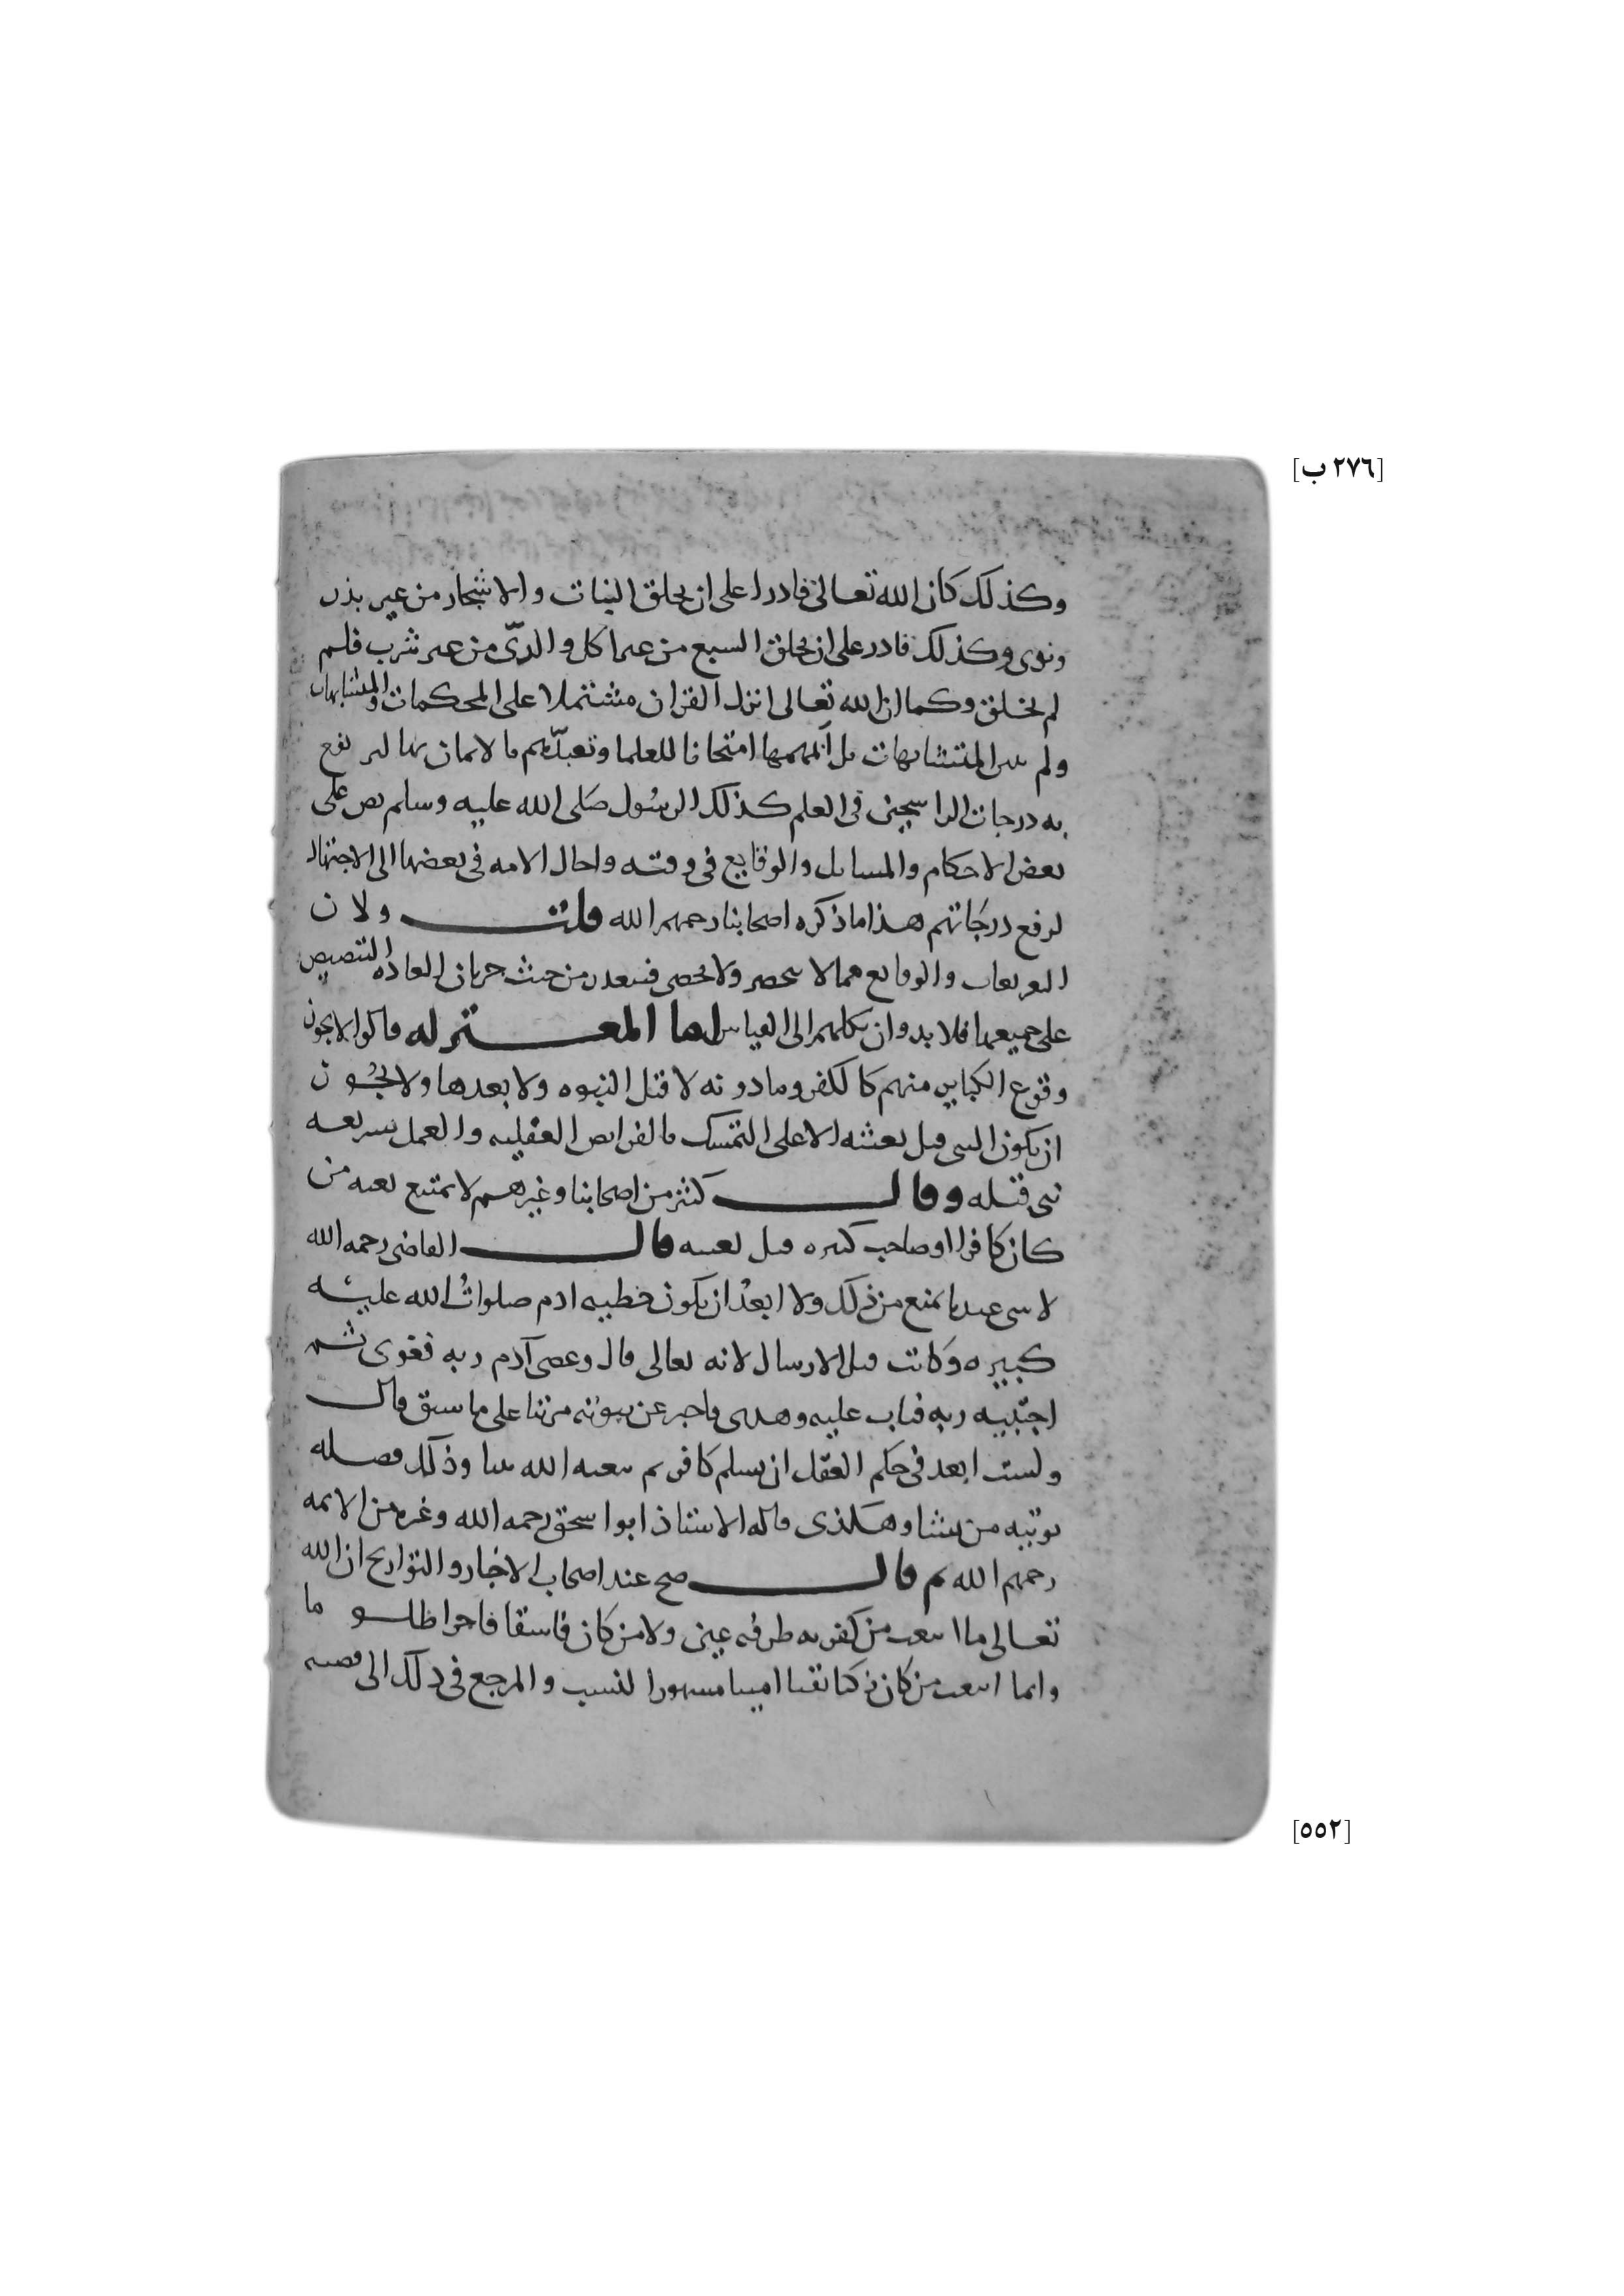 [٢٧٦ ب]
وكذلك كان الله تعالى قادرا على ان يخلق النبات والاشجار من غير بذر
ونوى وكذلك قادر على ان يخلق الشبع من غير اكل والريّ من غير شرب فلم
لم يخلق وكما ان الله تعالى انزل القران مشتملا على المحكمات والمتشابهات
ولم يبين المتشابهات بل ابهمها امتحانا للعلما وتعبدهم بالايمان بها ليرفع
به درجات الراسخين في العلم كذلك الرسول صلى الله عليه وسلم نص على
بعض الاحكام والمسايل والوقايع في وقته واحال الامه في بعضها الى الاجتهاد
لرفع درجاتهم هذا ما ذكره اصحابنا رحمهم الله قلت ولان
التفريعات والوقايع مما لا ينحصر ولا يحصى فيبعد من حيث جريان العاده التنصيص
على جميعها فلا بد وان يكلهم الى القياس اما المعتزله قالوا لا يجوز
وقوع الكباير منهم كالكفر وما دونه لا قبل النبوه ولا بعدها ولا يجوز
ان يكون النبي قبل بعثته الا على التمسك بالفرايض العقليه والعمل بشريعه
نبي قبله وقال كثير من اصحابنا وغيرهم لا يمتنع بعثه من
كان كافرا او صاحب كبيره قبل بعثه قال القاضي رحمه الله
لا شي عندنا يمنع من ذلك ولا ابعد ان يكون خطيه ادم صلوات الله عليه
كبيره وكانت قبل الارسال لانه تعالى قال وعصى آدم ربه فغوى ثم
اجتبيه ربه فتاب عليه وهدى فاخبر عن نبوته مرتبا على ما سبق قال
ولست ابعد في حكم العقل ان يسلم كافر ثم يبعثه الله نبيا وذلك فضله
يوتيه من يشا وهكذى قاله الاستاذ ابو اسحق رحمه الله وغيره من الايمه
رحمهم الله ثم قال صح عند اصحاب الاخبار والتواريخ ان الله
تعالى ما ابتعث من كفر به طرفه عين ولا من كان فاسقا فاجرا ظلوما
وانما ابتعث من كان زكيا تقيا امينا مشهور النسب والمرجع في ذلك الى قصه
[٥٥٢]